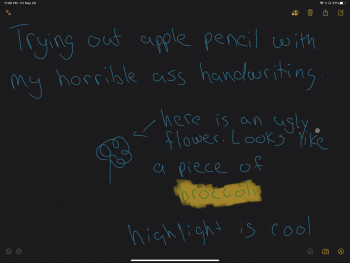 11:08 PM Fri May 29
Trying out apple pencil with
my horrible ass handwriting.
here is an ugly
flower. Looks like
a piece of
broccoli
highlight is cool